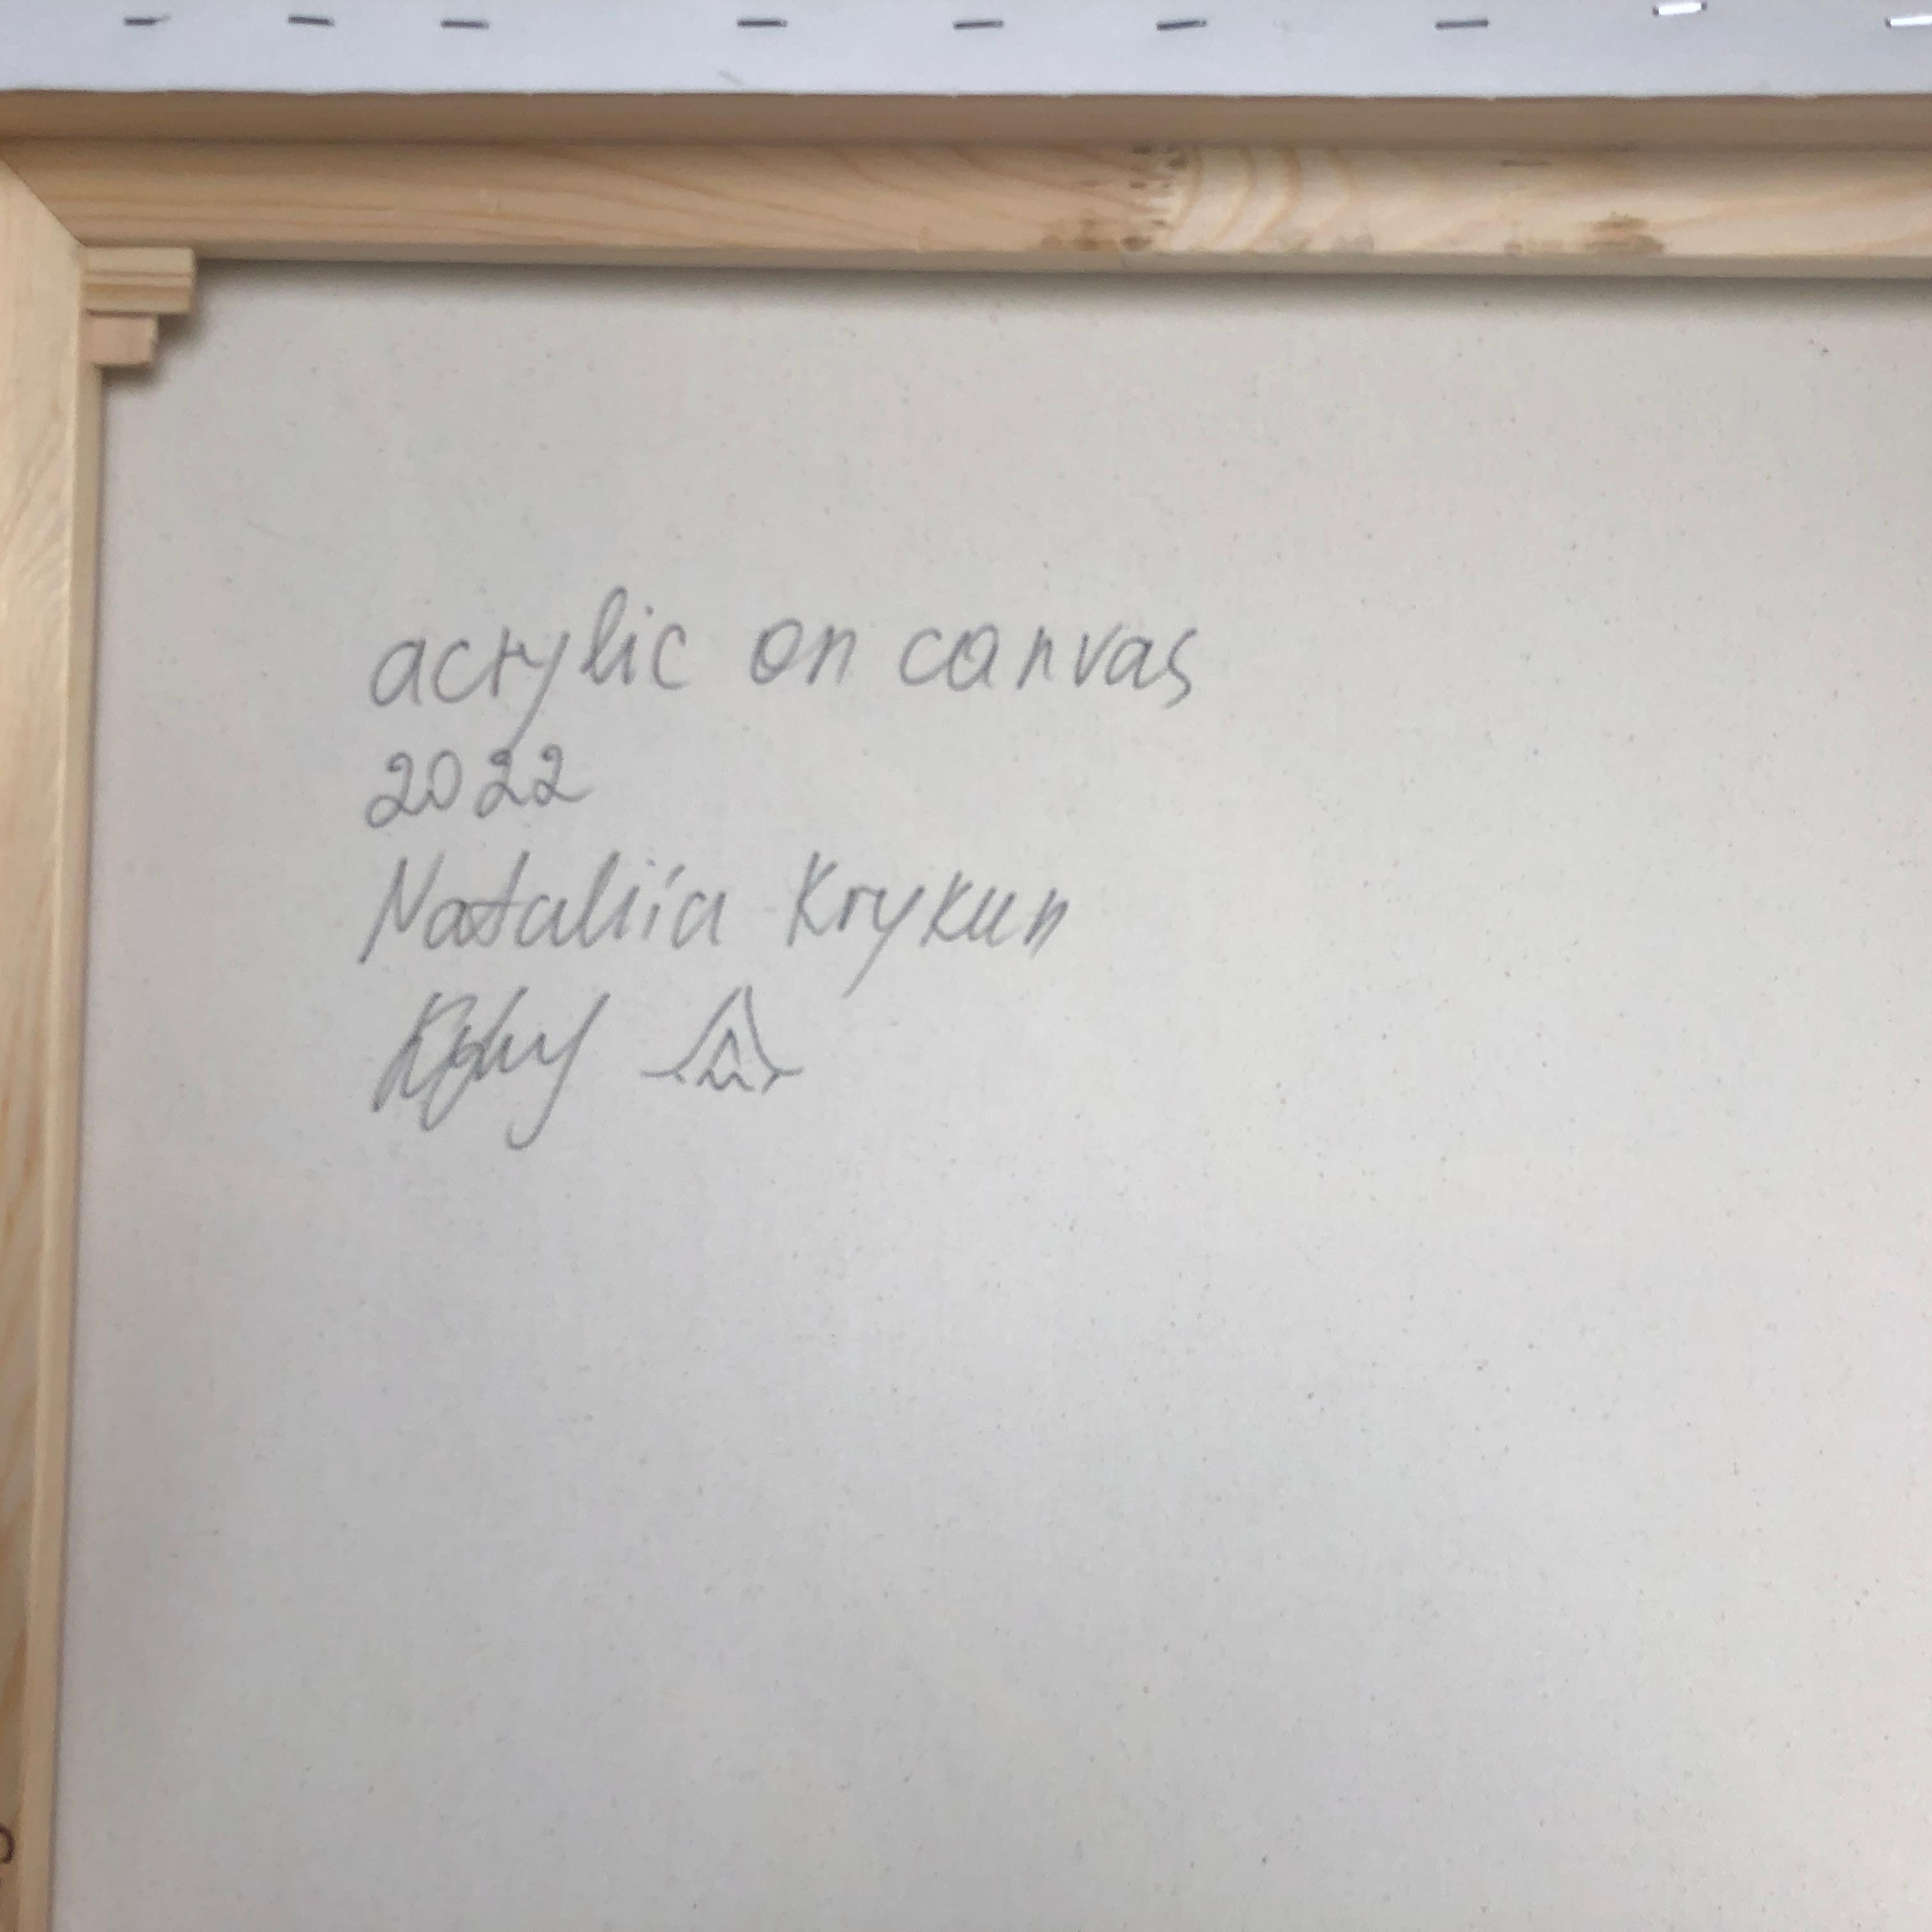 acrylic on canvas
2022
Nataliia Krykun